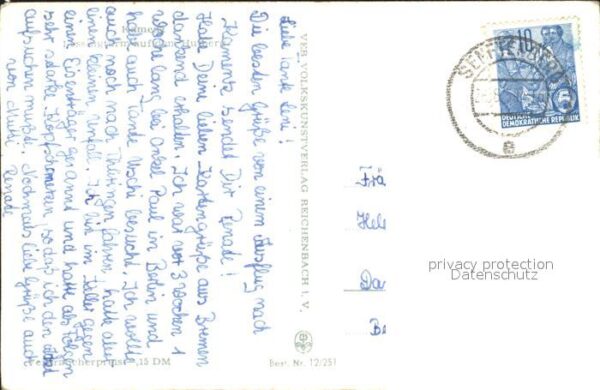 Liebe Tante Leni!
Die besten Grüße von einem Ausflug nach
Kamenz sendet Dir Renade!
Habe Deine lieben Kartengrüße aus Bremen
dankend erhalten. Ich war vor 3 Wochen 1
Woche lang bei Onkel Paul in Berlin und
habe auch Tante Uschi besucht. Ich wollte
auch noch nach Thüringen fahren, hatte aber
einen kleinen Unfall. Ich bin im Keller gegen
einen Eisenträger gerannt und hatte als Folgen
sehr starke Kopfschmerzen, sodaß ich den
aufsuchen mußte. Nochmals liebe Grüße auch
von
Renade
Kamenz
VEB VOLKSKUNSTVERLAG REICHENBACH I. V.
Verbraucherpreis -,15 DM
Best. Nr. 12/251
10
5
DEUTSCHE
DEMOKRATISCHE REPUBLIK
SENFTENBERG
e
Frä
Hel
Da
privacy protection
Datenschutz